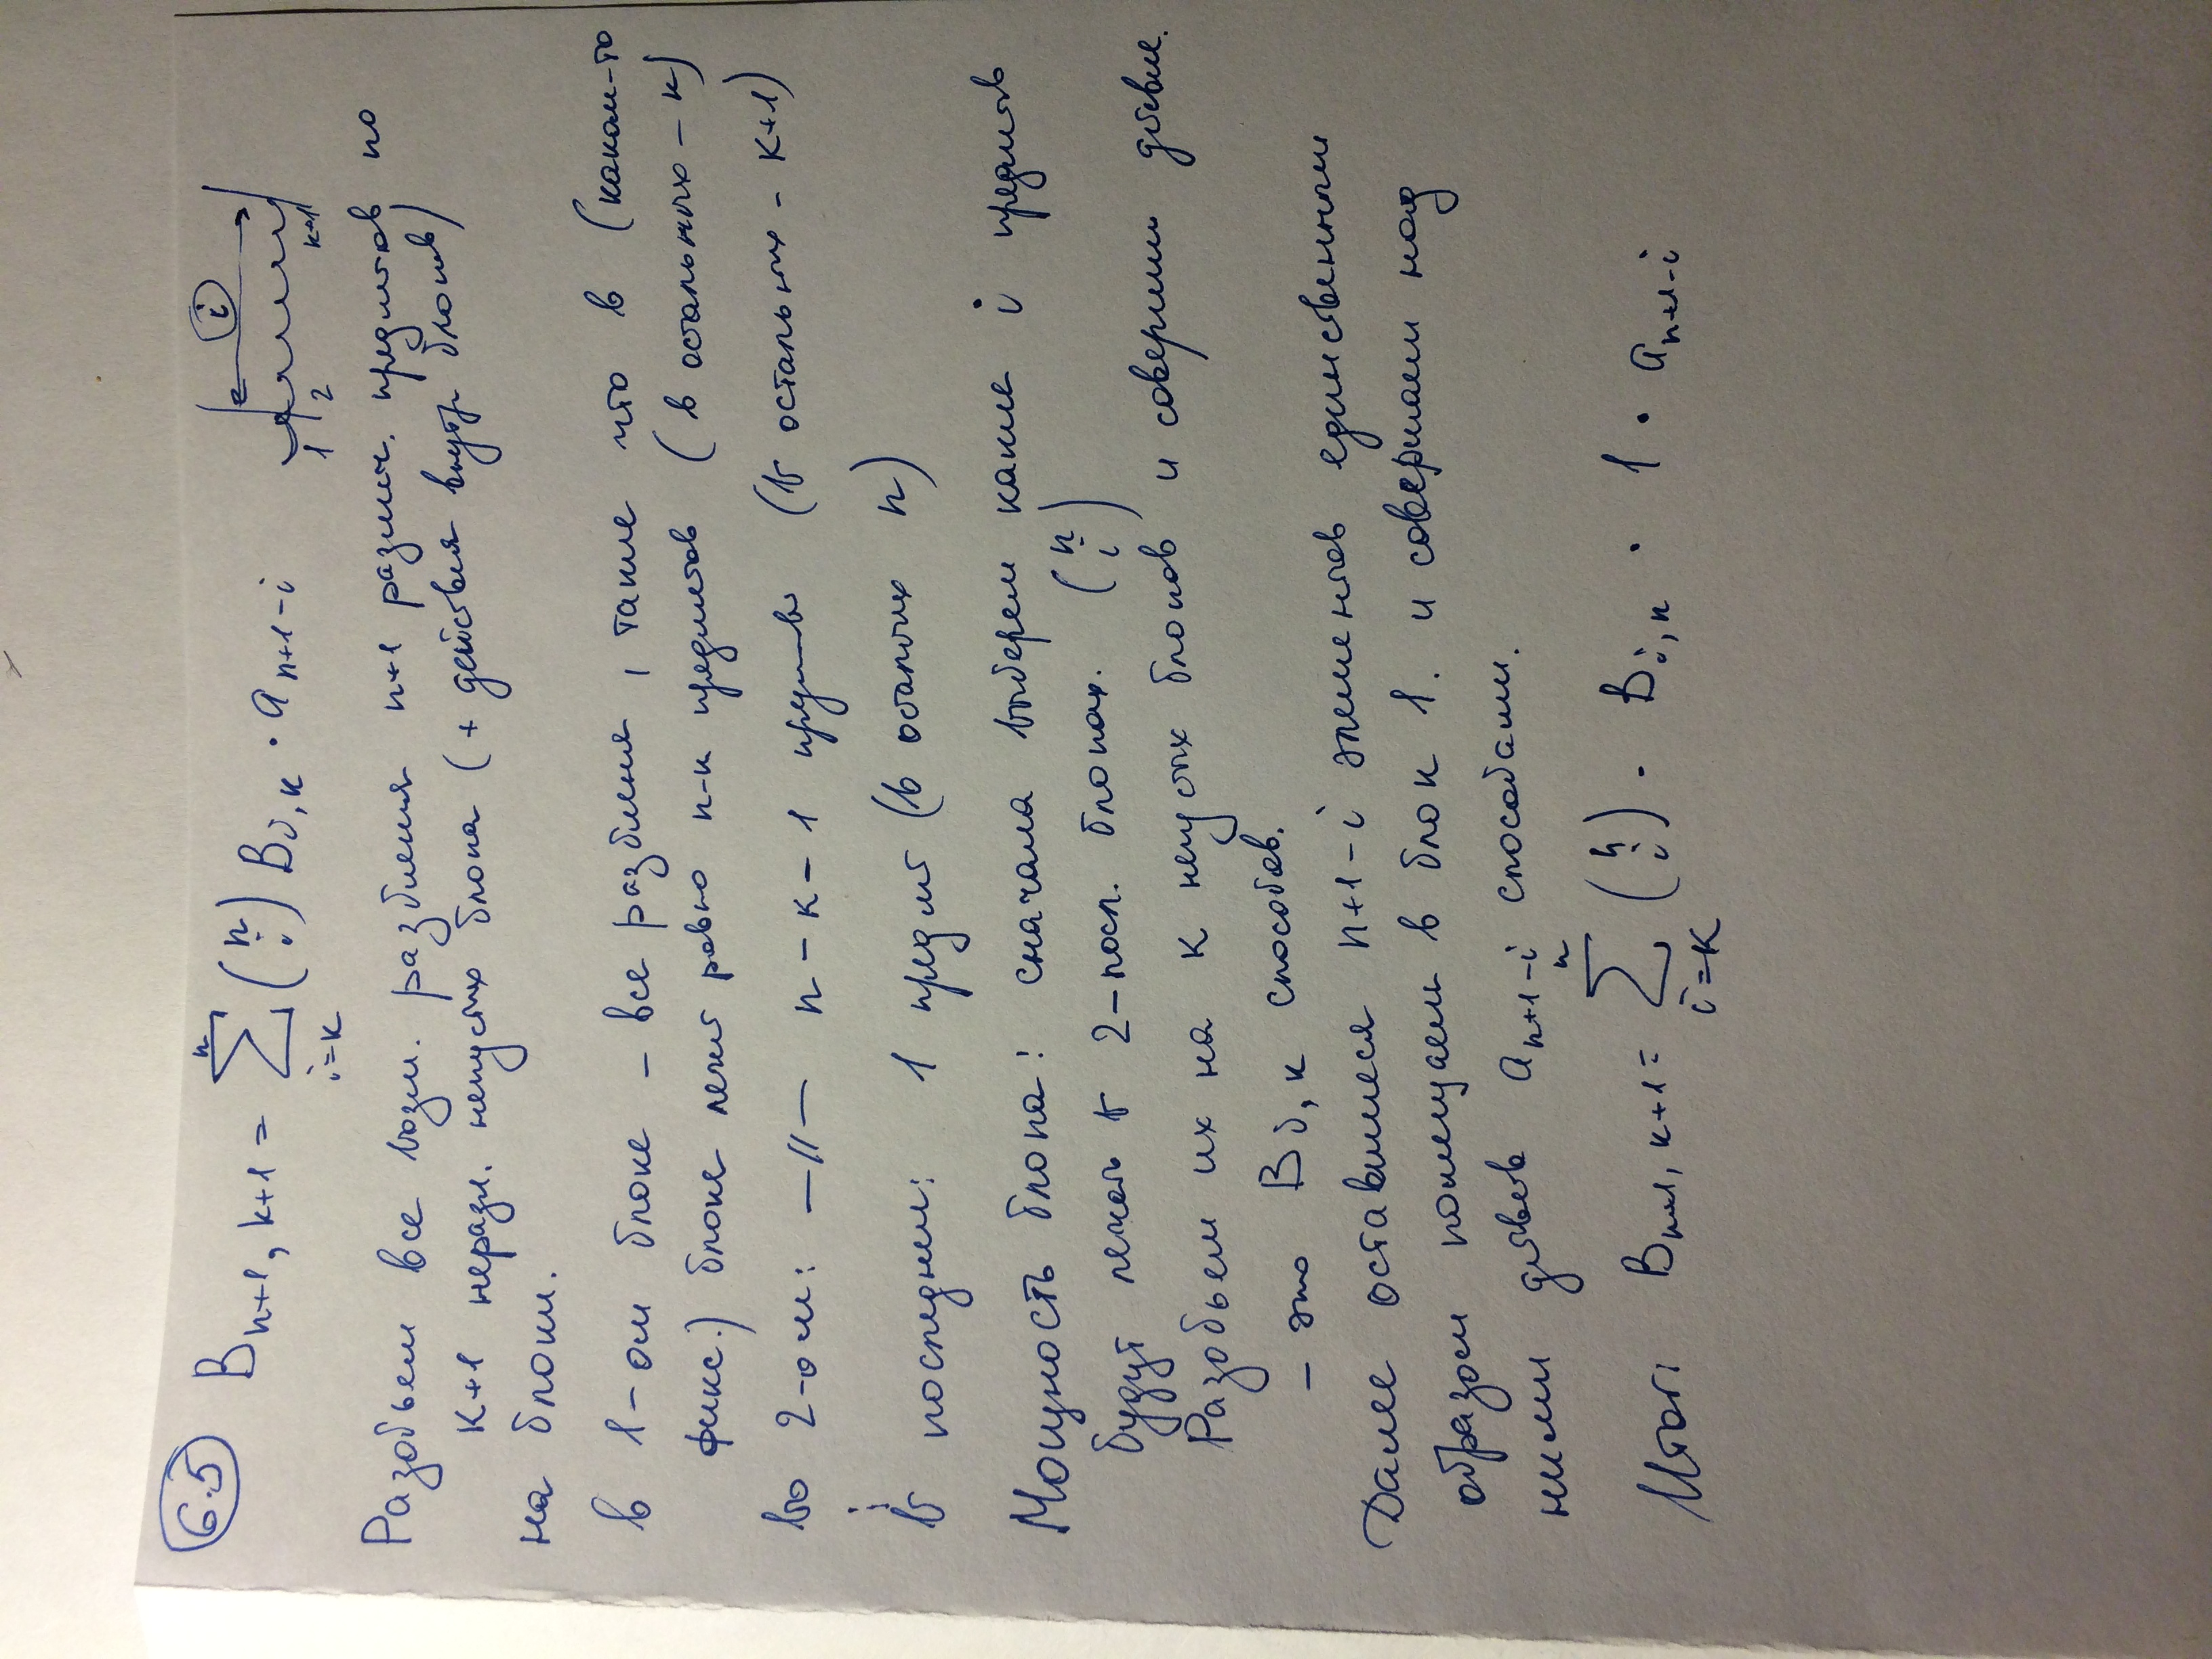 6.5 B_{n+1, k+1} = \sum_{i=k}^{n} \binom{n}{i} B_{i,k} · a_{n+1-i}
i
1 2 k+1
Разобьем все возм. разбиения n+1 различ. предметов по
k+1 неразл. непустых блока (+ действия внутр блоков)
на блоки.
в 1-ом блоке - все разбиения, такие что в (каком-то
фикс.) блоке лежит ровно предметов (в остальных - k)
во 2-ом: —//— n-k-1 предметов (в остальных - k+1)
⋮
в последнем: 1 предмет (в остальных n)
Мощность блока: сначала выберем какие i предметов
будут лежать в 2-посл. блоках. \binom{n}{i}
Разобьем их на k непустых блоков и совершим
- это B_{i,k} способов.
Далее оставшиеся n+1-i элементов единственным
образом помещаем в блок 1. и совершаем над
ними a_{n+1-i} способами.
Итог: B_{n+1, k+1} = \sum_{i=k}^{n} \binom{n}{i} · B_{i,k} · 1 · a_{n+1-i}